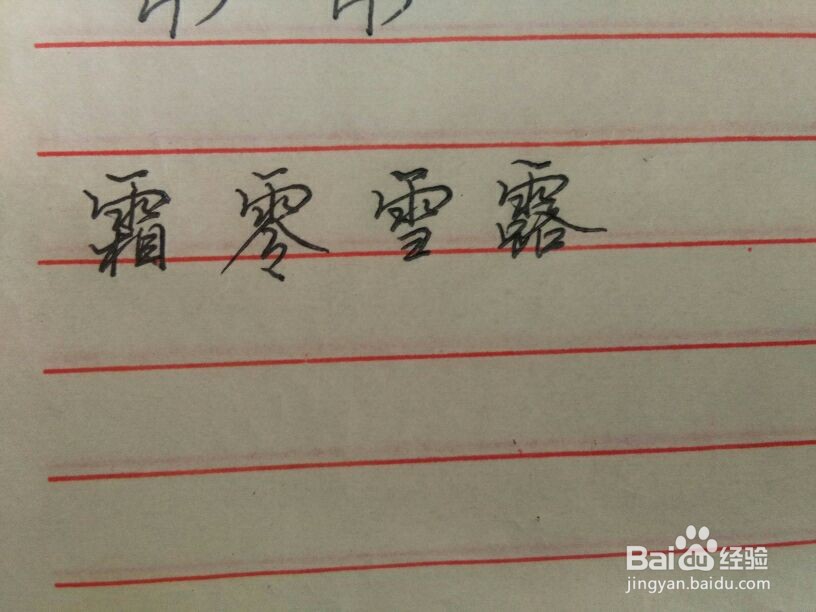 霜零雪露
Baidu经验
jingyan.baidu.com